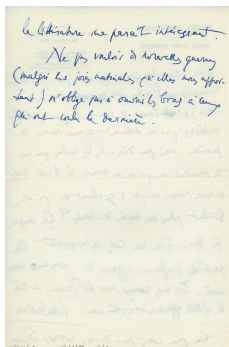 la littérature me paraît intéressant.
Ne pas vouloir de nouvelles guerres
(malgré les joies matérielles qu'elles nous appor-
tent) n'oblige pas à ouvrir les bras à ceux
qui ont voulu la dernière.